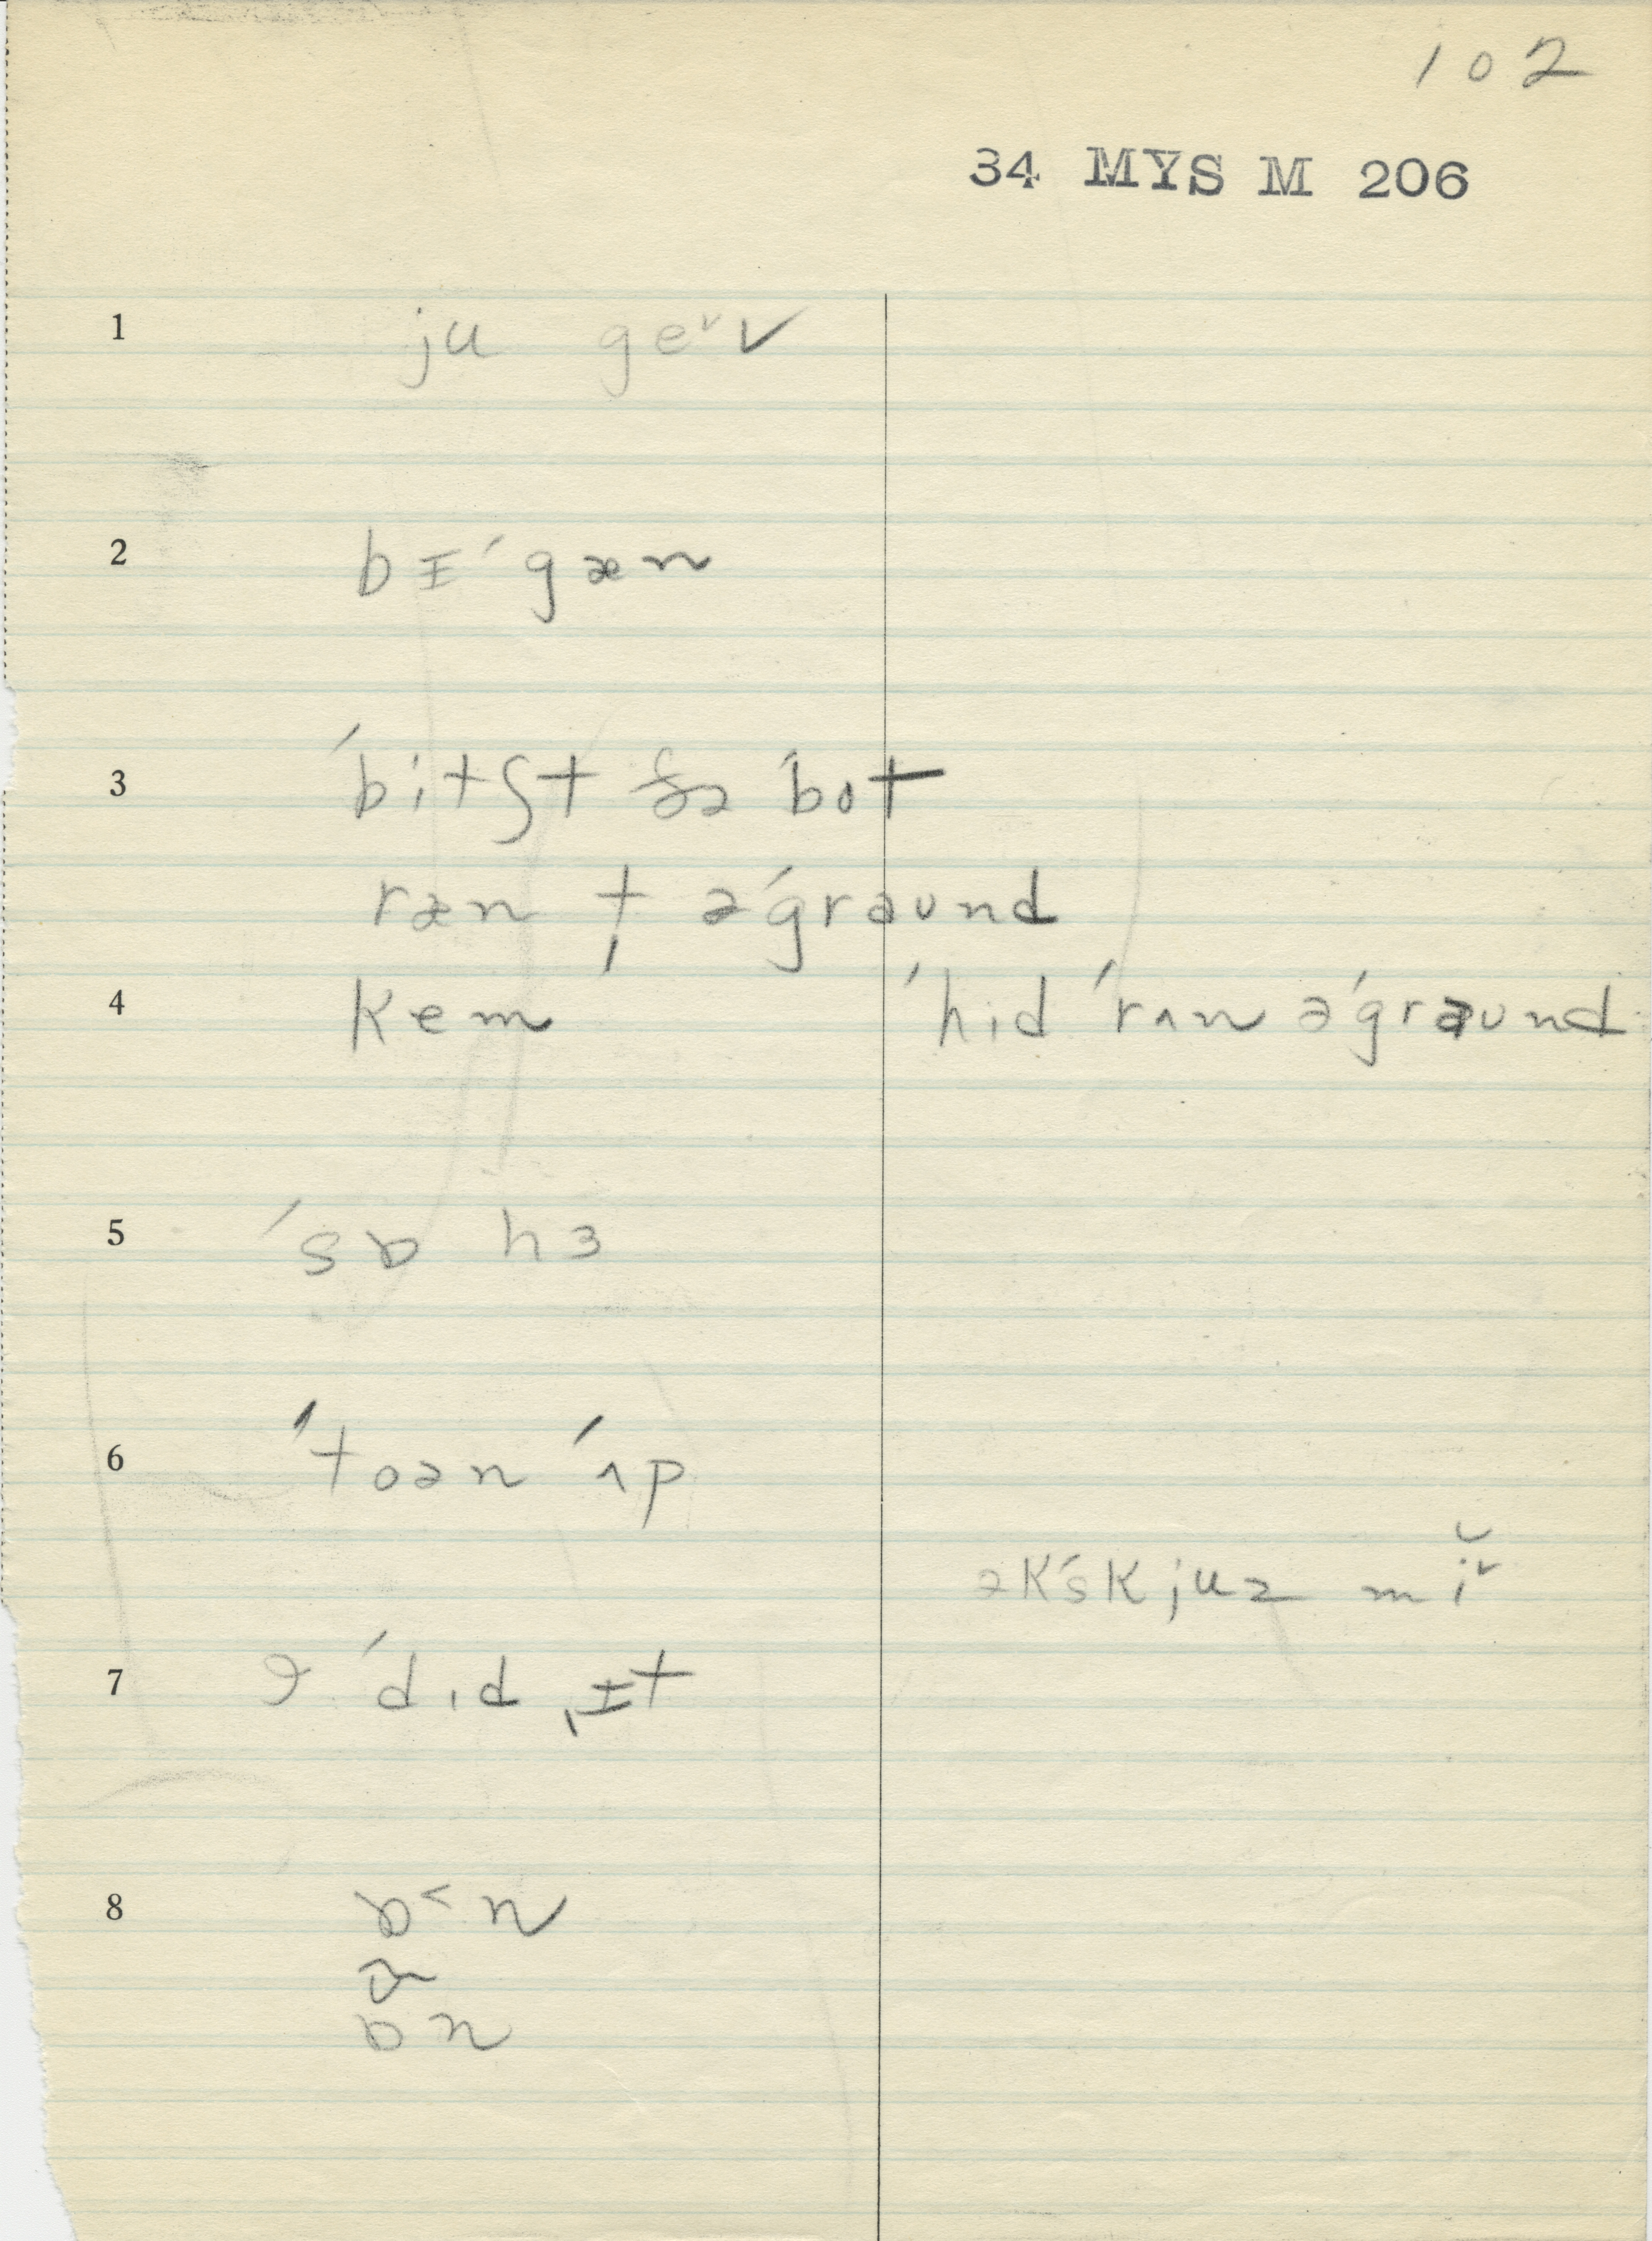 102
34 MYS M 206
1 ju geᵛv
2 bɪˈgæn
3 ˈbitʃt ðə ˈbot
ræn ƚ əˈgraʊnd
4 kem ˈhid ˈrʌn əˈgraʊnd
5 ˈsɒ hɜ
6 ˈtoən ˈʌp
əkˈskjuz mĭᵛ
7 ˈdɪd ˌɪt
8 ɒ˂n
ɒn